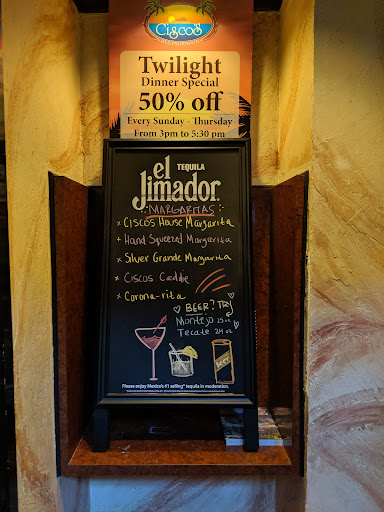 CISCOS
RESTAURANT
Twilight
Dinner Special
50% off
Every Sunday - Thursday
From 3pm to 5:30 pm
el TEQUILA
Jimador.
MARGARITAS
x CISCOS House Margarita
+ Hand Squeezed Margarita
x Silver Grande Margarita
x Ciscos Cadde
x Corona-rita
BEER? TRY
Montejo 25 oz
Tecate 24 oz
BEER
Please enjoy Mexico's #1 selling* tequila in moderation.